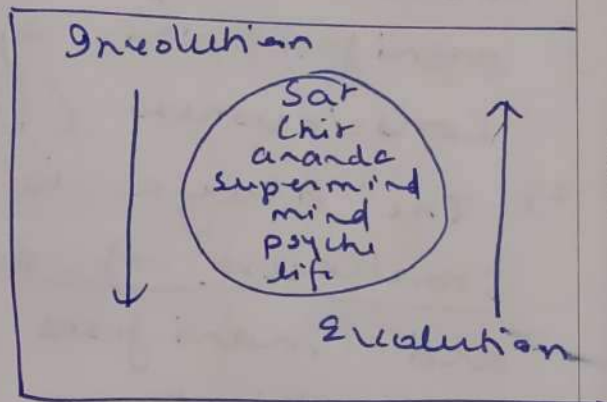 Involution
Sat
Chit
ananda
supermind
mind
psyche
life
Evolution